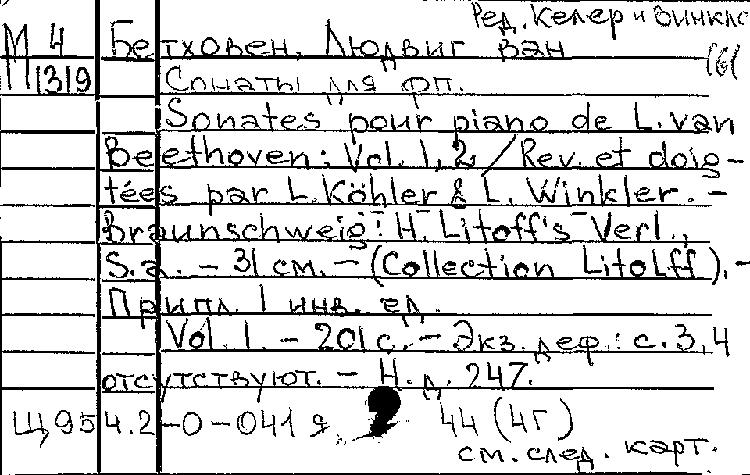 Ред. Келер и Винкл
М 4 Бетховен, Людвиг ван
П1319 Сонаты для фп. (6(
Sonates pour piano de L. van
Beethoven: Vol. 1, 2 / Rev. et doig-
tées par L. Köhler & L. Winkler. -
Braunschweig: H. Litoff's Verl.,
S.a. - 31 см. - (Collection Litolff). -
Припл. 1 инв. ед.
Vol. 1. - 201 с. - Экз. деф.: с. 3, 4
отсутствуют. - Н. д. 247.
Щ954.2-0-041 я 44 (4Г)
см. след. карт.